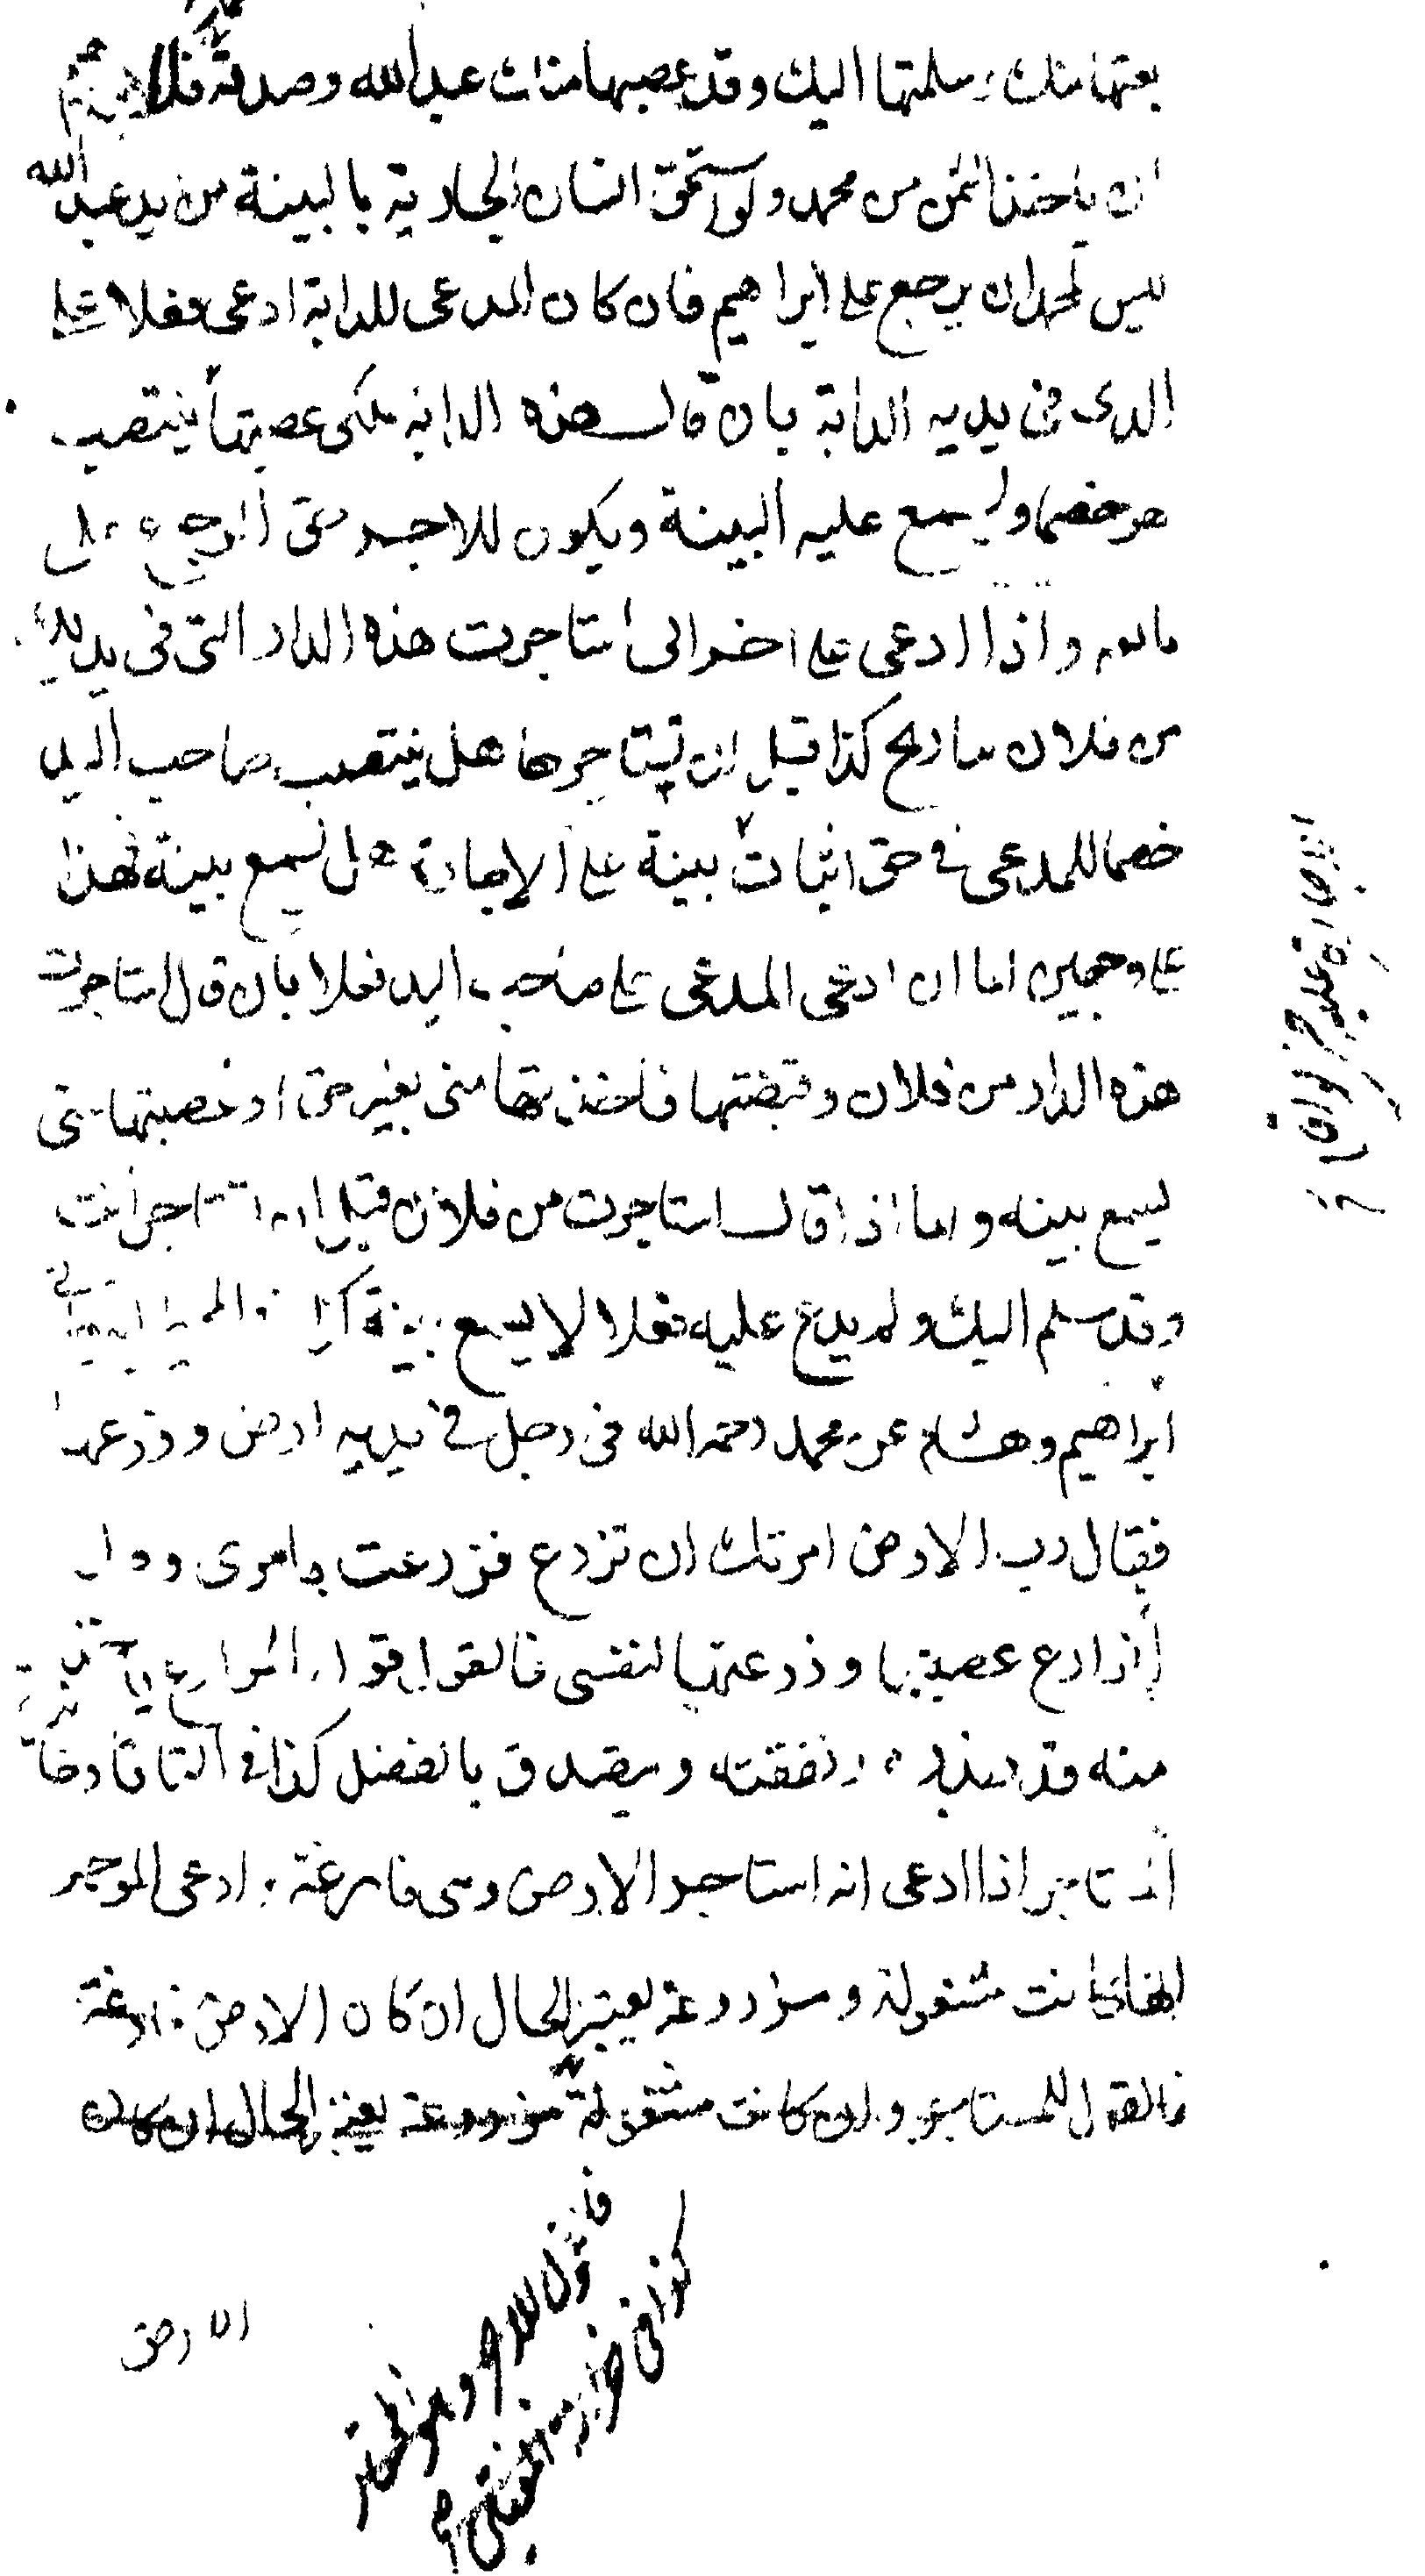 بعتها منك وسلمتها اليك وقد غصبها منك عبد الله وصدقه فلا
ان ياخذ الثمن من محمد ولو استحق انسان الجارية بالبينة من يد عبد الله
ليس لمحمد ان يرجع على ابراهيم فان كان المدعى للدابة ادعى فعلا على
الذى فى يديه الدابة بان قال هذه الدابة ملكى غصبتها ينتصب
هو خصما ويسمع عليه البينة ويكون للاجر حق
واذا ادعى على اخر انى استاجرت هذه الدار التى فى يديك
من فلان بتاريخ كذا قبل ان تستاجرها هل ينتصب صاحب اليد
خصما للمدعى فى حق اثبات بينة على الاجارة هل تسمع بينة فهذا
على وجهين اما ان ادعى المدعى على صاحب اليد فعلا بان قال استاجرت
هذه الدار من فلان وقبضتها فاخذتها منى بغير حق او غصبتها منى
يسمع بينه واما اذا قال استاجرت من فلان قبل ان استاجر انت
وقد سلم اليك ولم يدع عليه فعلا لا يسمع بينة
ابراهيم وهشام عن محمد رحمه الله فى رجل فى يديه ارض وزرعها
فقال رب الارض امرتك ان تزرع فزرعت بامرى وقال
الزارع غصبتها وزرعتها لنفسى فالقول قول المزارع
منه قدر بذره ونفقته ويتصدق بالفضل كذا فى التاتارخانية
المستاجر اذا ادعى انه استاجر الارض وهى فارغة وادعى الموجر
انها كانت مشغولة ومزروعة يعتبر الحال ان كان الارض فارغة
فالقول للمستاجر وان كانت مشغولة مزروعة يعتبر الحال ان كان
فالقول للموجر وهو المختار
كذا فى خزانة المفتين
الارض